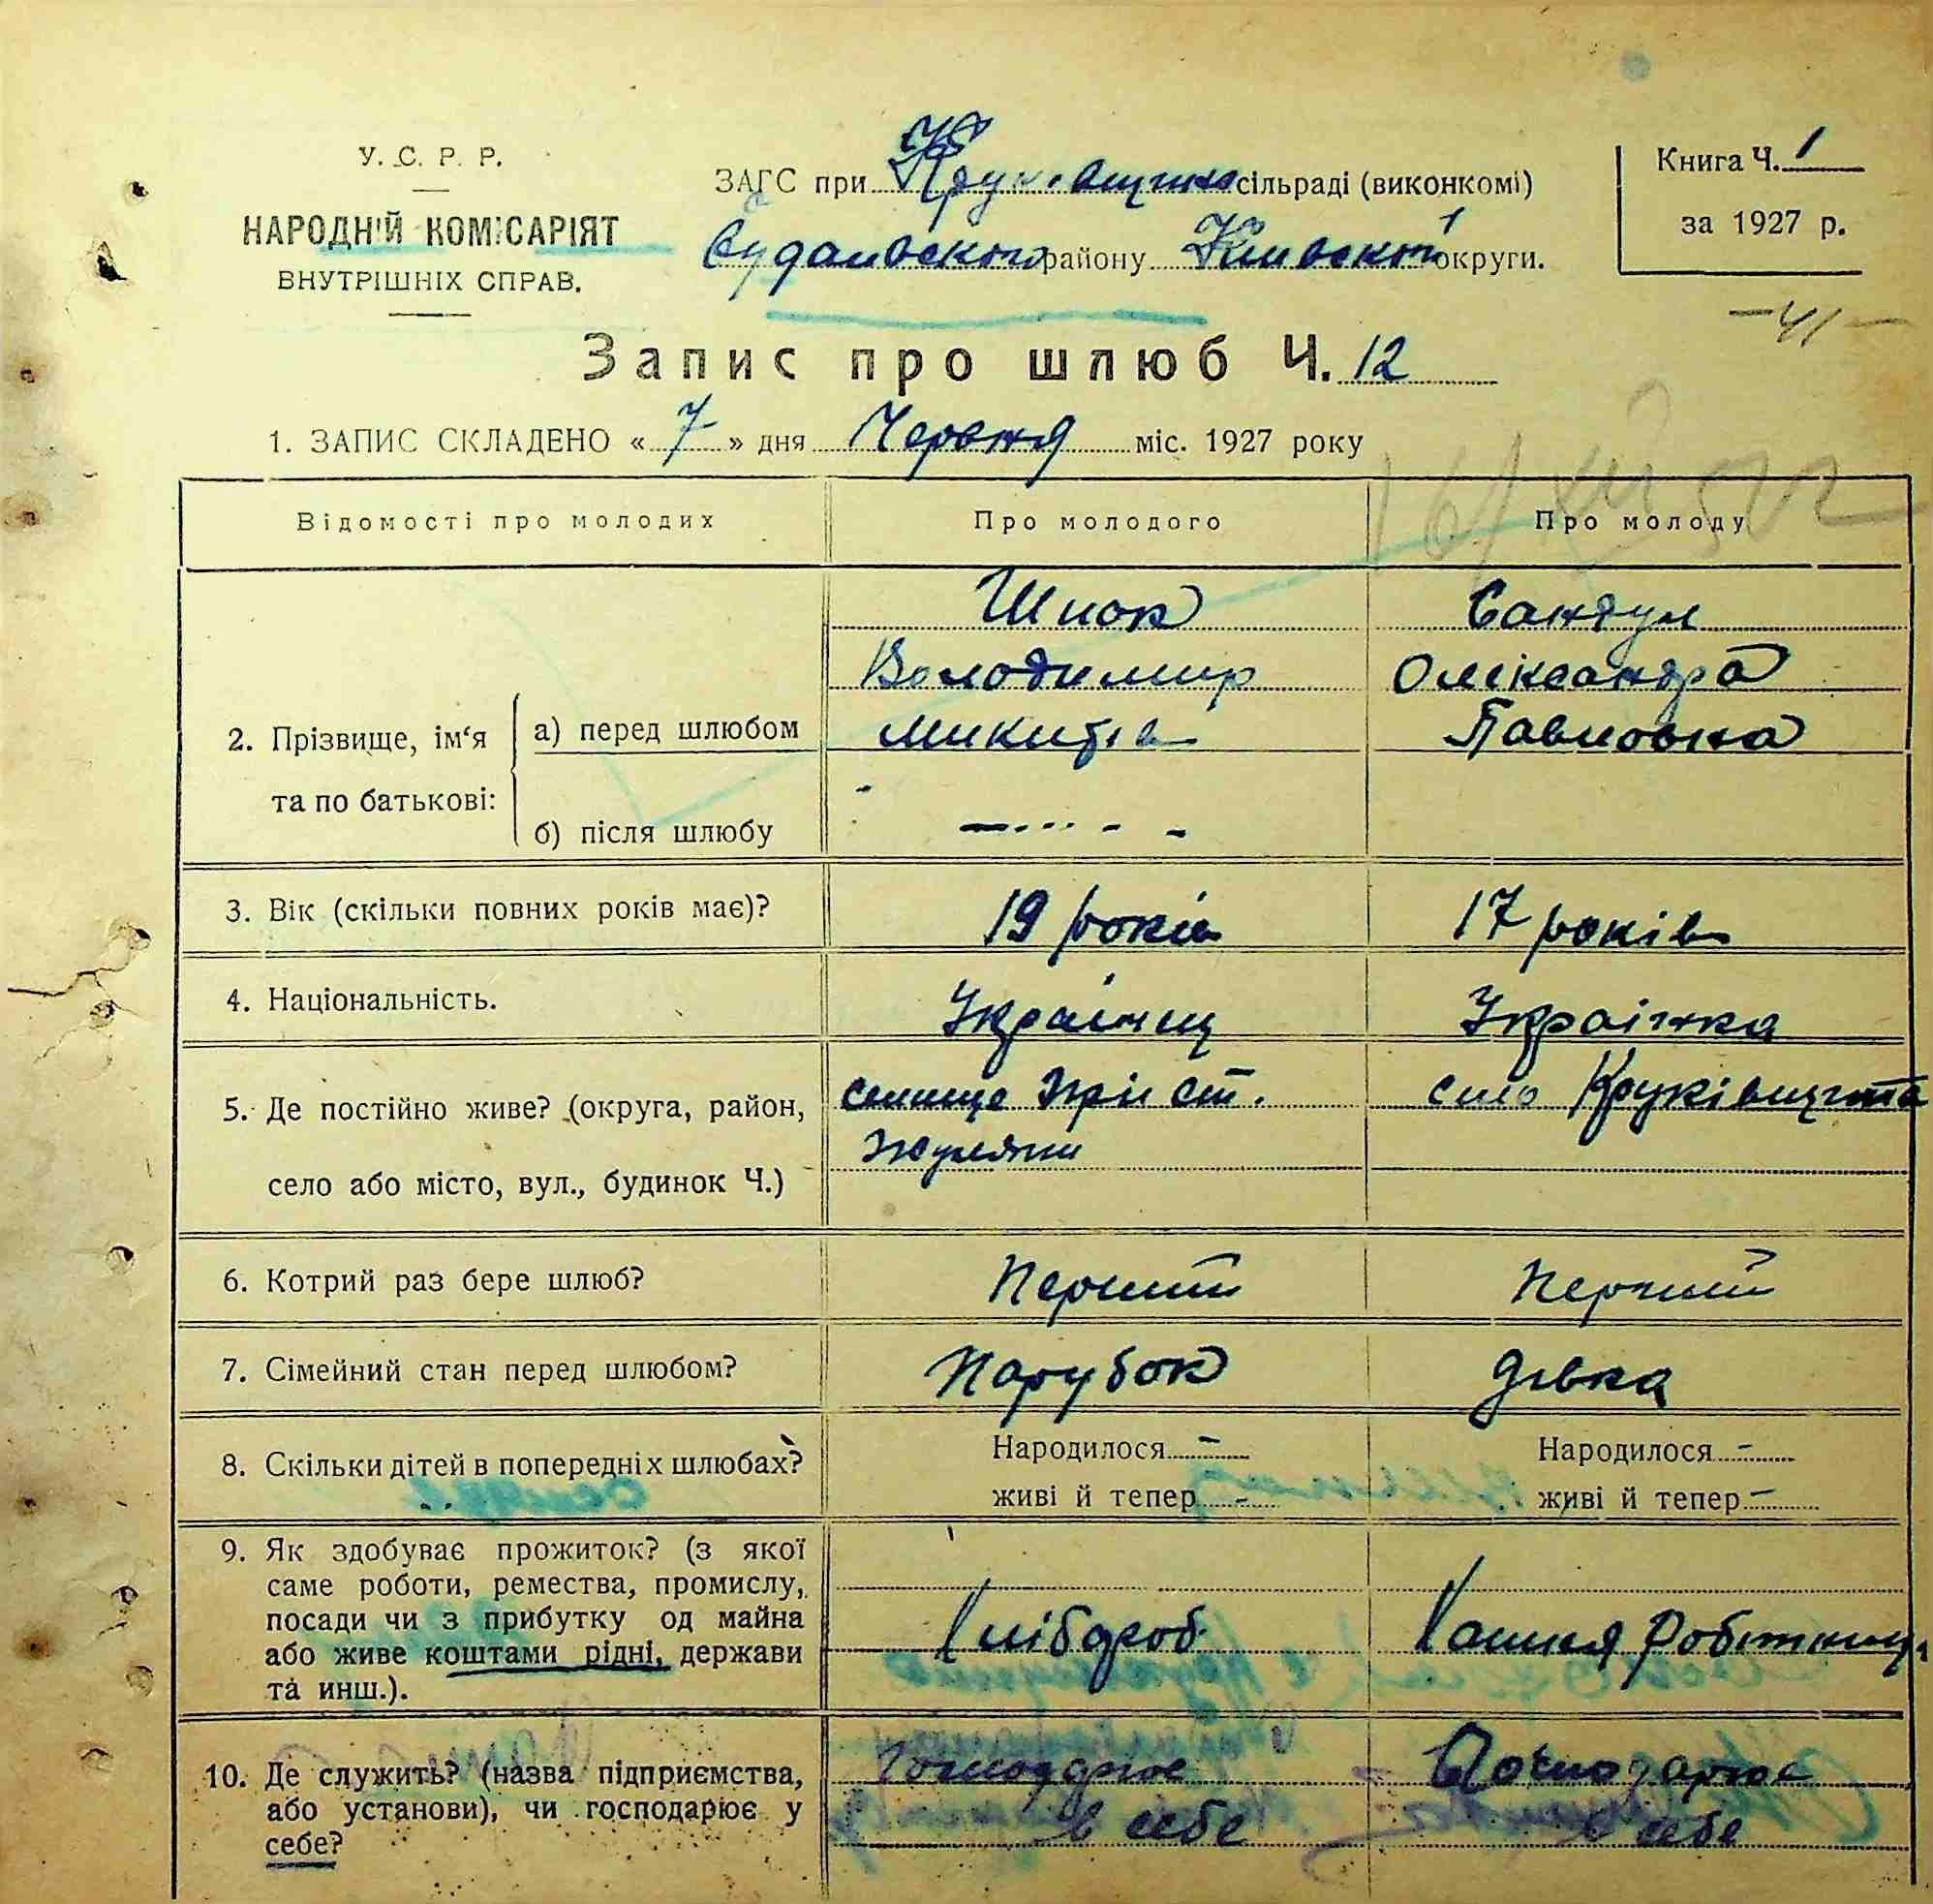 У. С. Р. Р.
НАРОДНІЙ КОМІСАРІЯТ
ВНУТРІШНІХ СПРАВ.
ЗАГС при сільраді (виконкомі)
району Київської округи.
Книга Ч. 1
за 1927 р.
-41-
Запис про шлюб Ч. 12
1. ЗАПИС СКЛАДЕНО « 7 » дня Червня міс. 1927 року
Відомості про молодих Про молодого Про молоду
2. Прізвище, ім'я та по батькові:
а) перед шлюбом
Шпок
Володимир
Микитів
Сандул
Олександра
Павловна
б) після шлюбу
3. Вік (скільки повних років має)? 19 років 17 років
4. Національність. Українц Украінка
5. Де постійно живе? (округа, район,
село або місто, вул., будинок Ч.)
селище при ст.
Жуляни
село Круківщина
6. Котрий раз бере шлюб? Перший Перший
7. Сімейний стан перед шлюбом? Парубок дівка
8. Скільки дітей в попередніх шлюбах? Народилося - Народилося -
живі й тепер - живі й тепер -
9. Як здобуває прожиток? (з якої
саме роботи, ремества, промислу,
посади чи з прибутку од майна
або живе коштами рідні, держави
та инш.).
Хлібороб
Хатня робітниця
10. Де служить? (назва підприємства,
або установи), чи господарює у
себе?
Господарює
в себе
Господарює
в себе